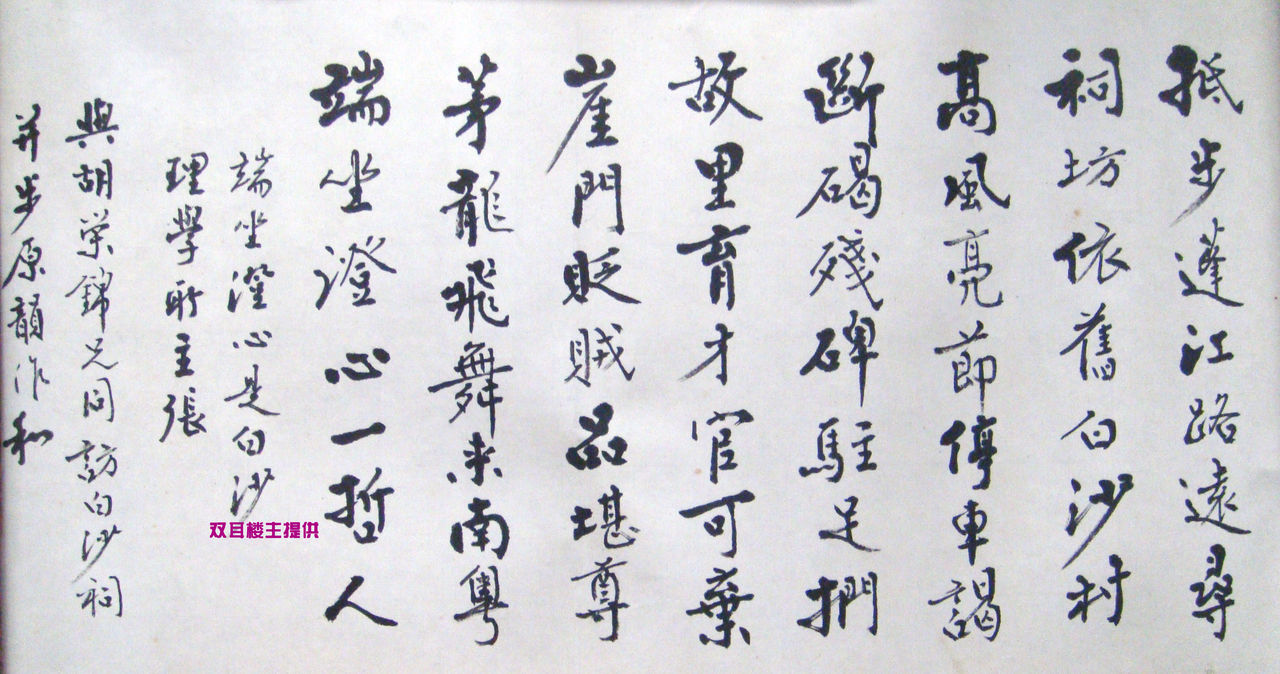 抵步蓬江路遠尋
祠坊依舊白沙村
高風亮節停車謁
斷碣殘碑駐足捫
故里育才官可棄
崖門貶賊品堪尊
茅龍飛舞來南粵
端坐澄心一哲人
端坐澄心是白沙
理學所主張
與胡榮錦兄同訪白沙祠
并步原韻作和
双耳楼主提供